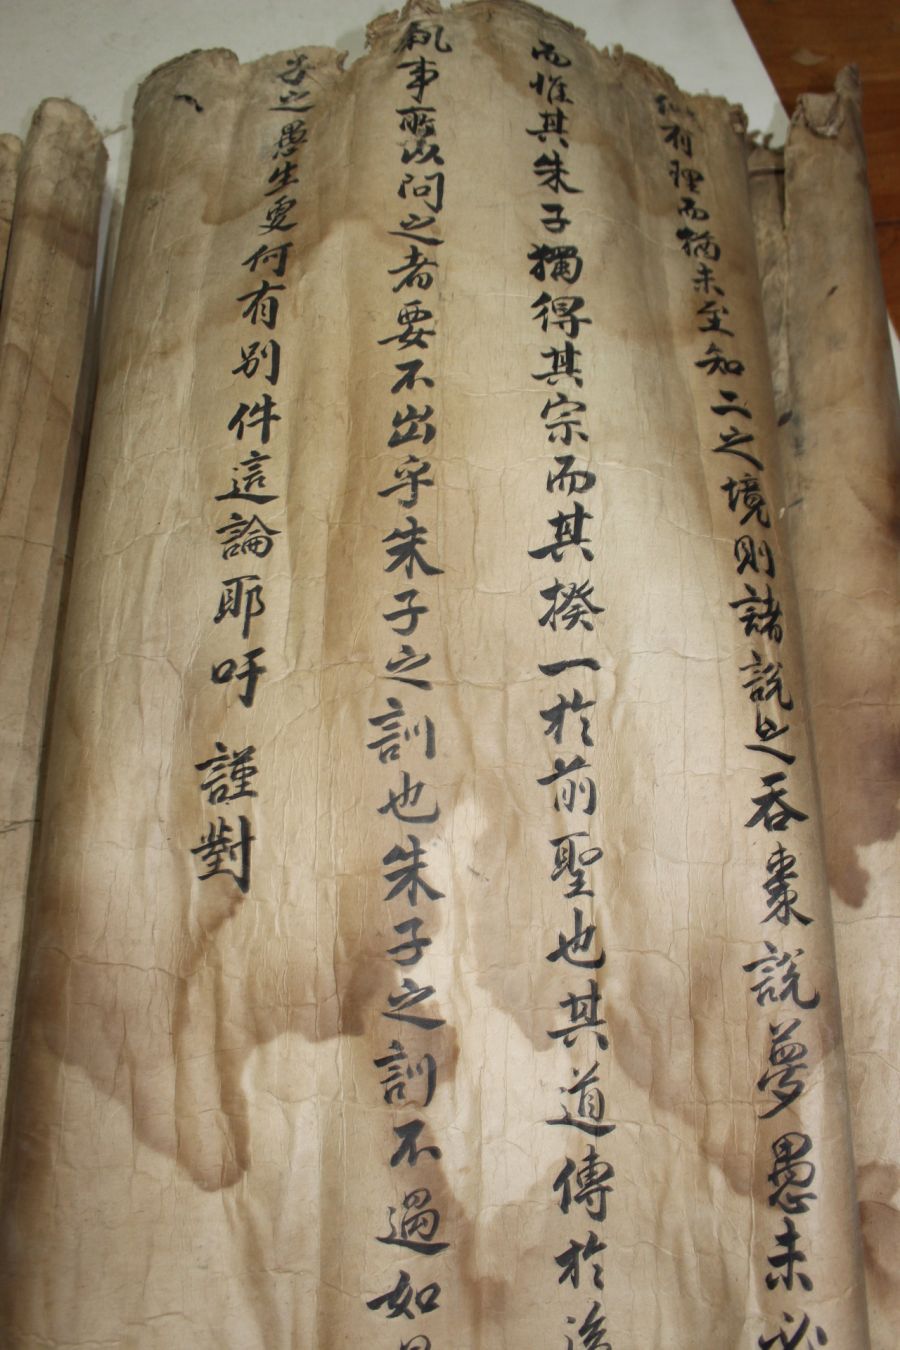 有理而猶未至知二之境則諸說是呑棗說夢愚未必
而惟其朱子獨得其宗而其揆一於前聖也其道傳於後
執事所以問之者要不出乎朱子之訓也朱子之訓不過如是
之愚生更何有別件這論耶吁 謹對